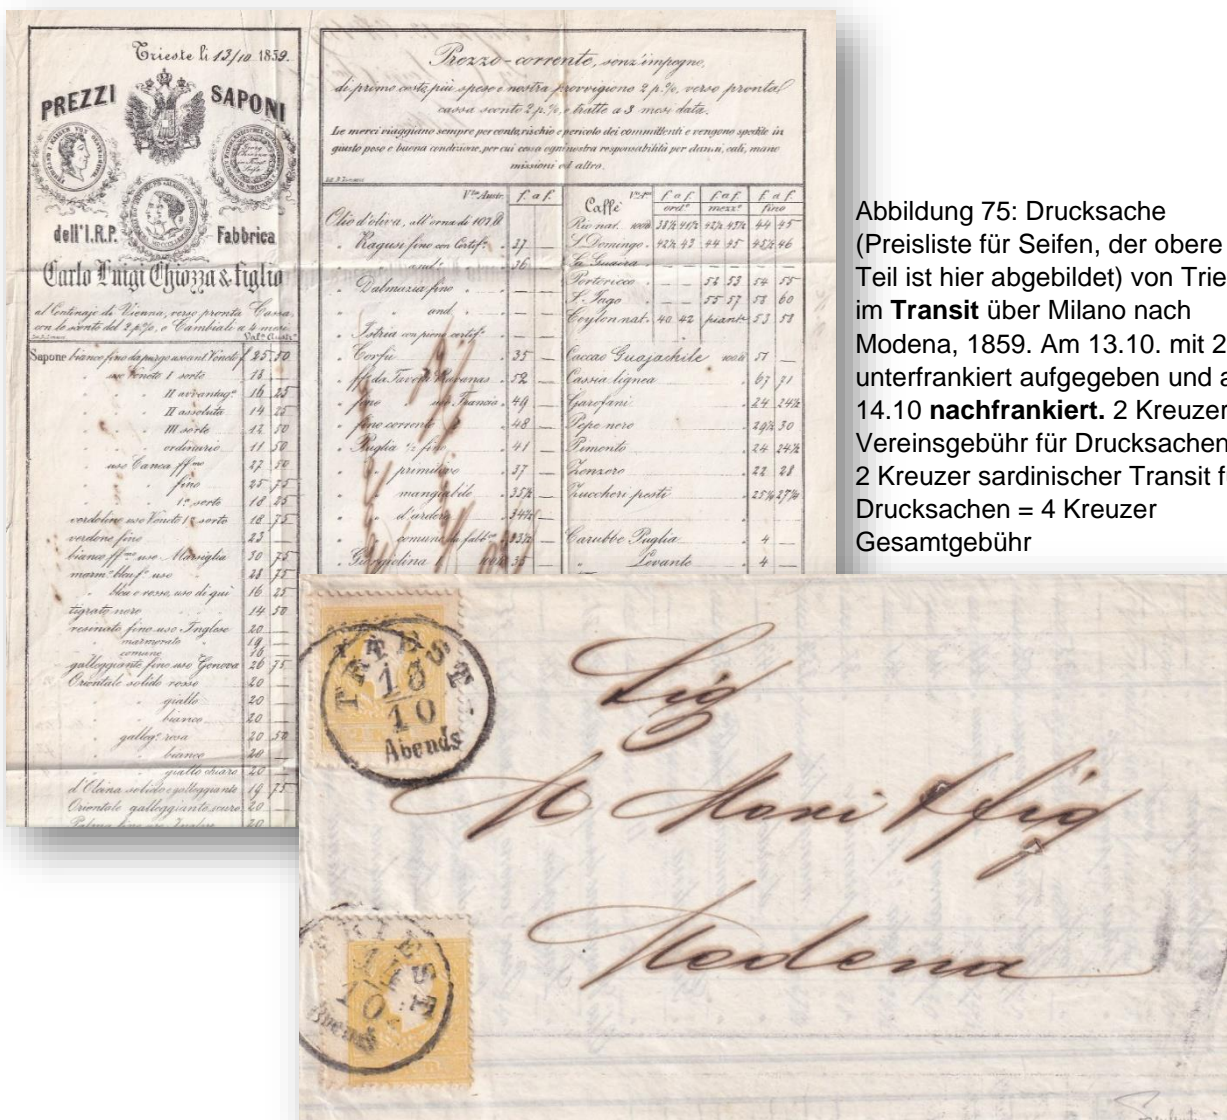 Trieste li 13/10 1859.
PREZZI SAPONI
dell'I.R.P. Fabbrica
Carlo Luigi Chiozza & figlio
al Centinajo di Vienna, verso pronta Cassa
con lo sconto del 2 p%, o Cambiali a 4 mesi
Sapone bianco fino da purgo uso ant. Veneto f 25 50
uso Veneto I sorte 18 —
II avvantag.º 16 25
II assoluta 14 25
III sorte 12 50
ordinario 11 50
uso Canea ff.mo 27 50
fino 25 75
1ª sorte 18 25
verdolino uso Veneto 1ª sorte 18 75
verdone fino 23
bianco ff.mo uso Marsiglia 30 75
marm.º bleu f.º uso 28 75
bleu e rosso, uso di qui 16 25
tigrato nero 14 50
resinato fino uso Inglese 20 —
marmorato 19 —
comune 16 —
galleggiante fino uso Genova 26 75
Orientale solido rosso 20 —
giallo 20 —
bianco 20 —
galleg.º rosa 20 50
bianco 20 —
giallo chiaro 20 —
d'Oleina solido e galleggiante 19 75
Orientale galleggiante 20 —
Prezzo-corrente, senz'impegno,
di primo costo, più spese e nostra provvigione 2 p.%, verso pronta
cassa sconto 2 p.%, o tratte a 3 mesi data.
Le merci viaggiano sempre per conto, rischio e pericolo dei committenti e vengono spedite in
giusto peso e buona condizione, per cui cessa ogni nostra responsabilità per danni, cali, mano
missioni ed altro.
V.ta Austr. f. a f.
Olio d'oliva, all'orna di 107 ℔
Ragusi fino con Certif.º 37 —
and.º 36 —
Dalmazia fino
and.
Istria con pieno certif.º
Corfù 35 —
ff. da Tavola 52 —
fino uso Francia 49 —
fino corrente 48 —
Puglia ½ fino 41 —
primitivo 37 —
mangiabile 35½ —
d'ardere
comune da fabb.ca
Caffè f a f. f. a f. f. a f.
ord.º mezz.º fino
Rio nat. 44 45
S. Domingo 42½ 43 44 45 45½ 46
La Guaira — — — — — —
Portoricco — — 52 53 54 55
S. Jago — — 55 57 58 60
Ceylon nat. 40 42 piant.º 53 58
Caccao Guajachile 100 ℔ 51 —
Cassia lignea 67 71
Garofani 24 24½
Pepe nero 29½ 30
Pimento 24 24½
Zenzero 22 28
Zuccheri pesti
Carubbe Puglia 4 —
Levante 4 —
Abbildung 75: Drucksache
(Preisliste für Seifen, der obere
Teil ist hier abgebildet) von Trie
im Transit über Milano nach
Modena, 1859. Am 13.10. mit 2
unterfrankiert aufgegeben und a
14.10 nachfrankiert. 2 Kreuzer
Vereinsgebühr für Drucksachen
2 Kreuzer sardinischer Transit f
Drucksachen = 4 Kreuzer
Gesamtgebühr
TRIEST
13
10
Abends
Sig
M Mori & fig
Modena
TRIEST
14
10
Abends